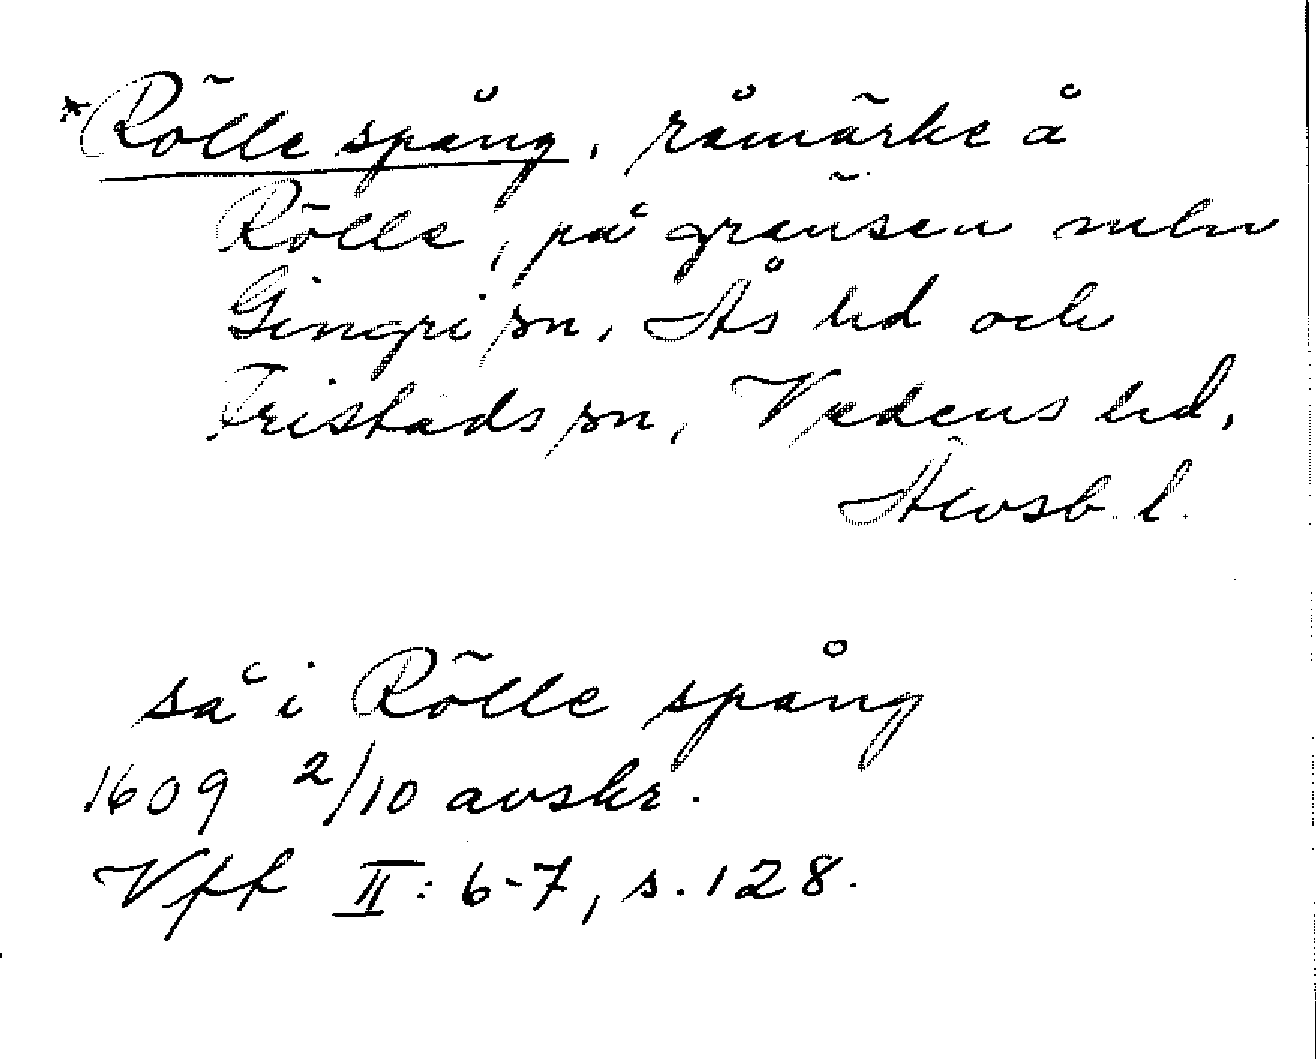 *Rölle spång, råmärke å
Rölle, på gränsen meln
Gingri sn, Ås hd och
Fristads sn, Vedens hd,
Älvsb. l.
så i Rölle spång
1609 2/10 avskr.
Vff II: 6-7, s. 128.